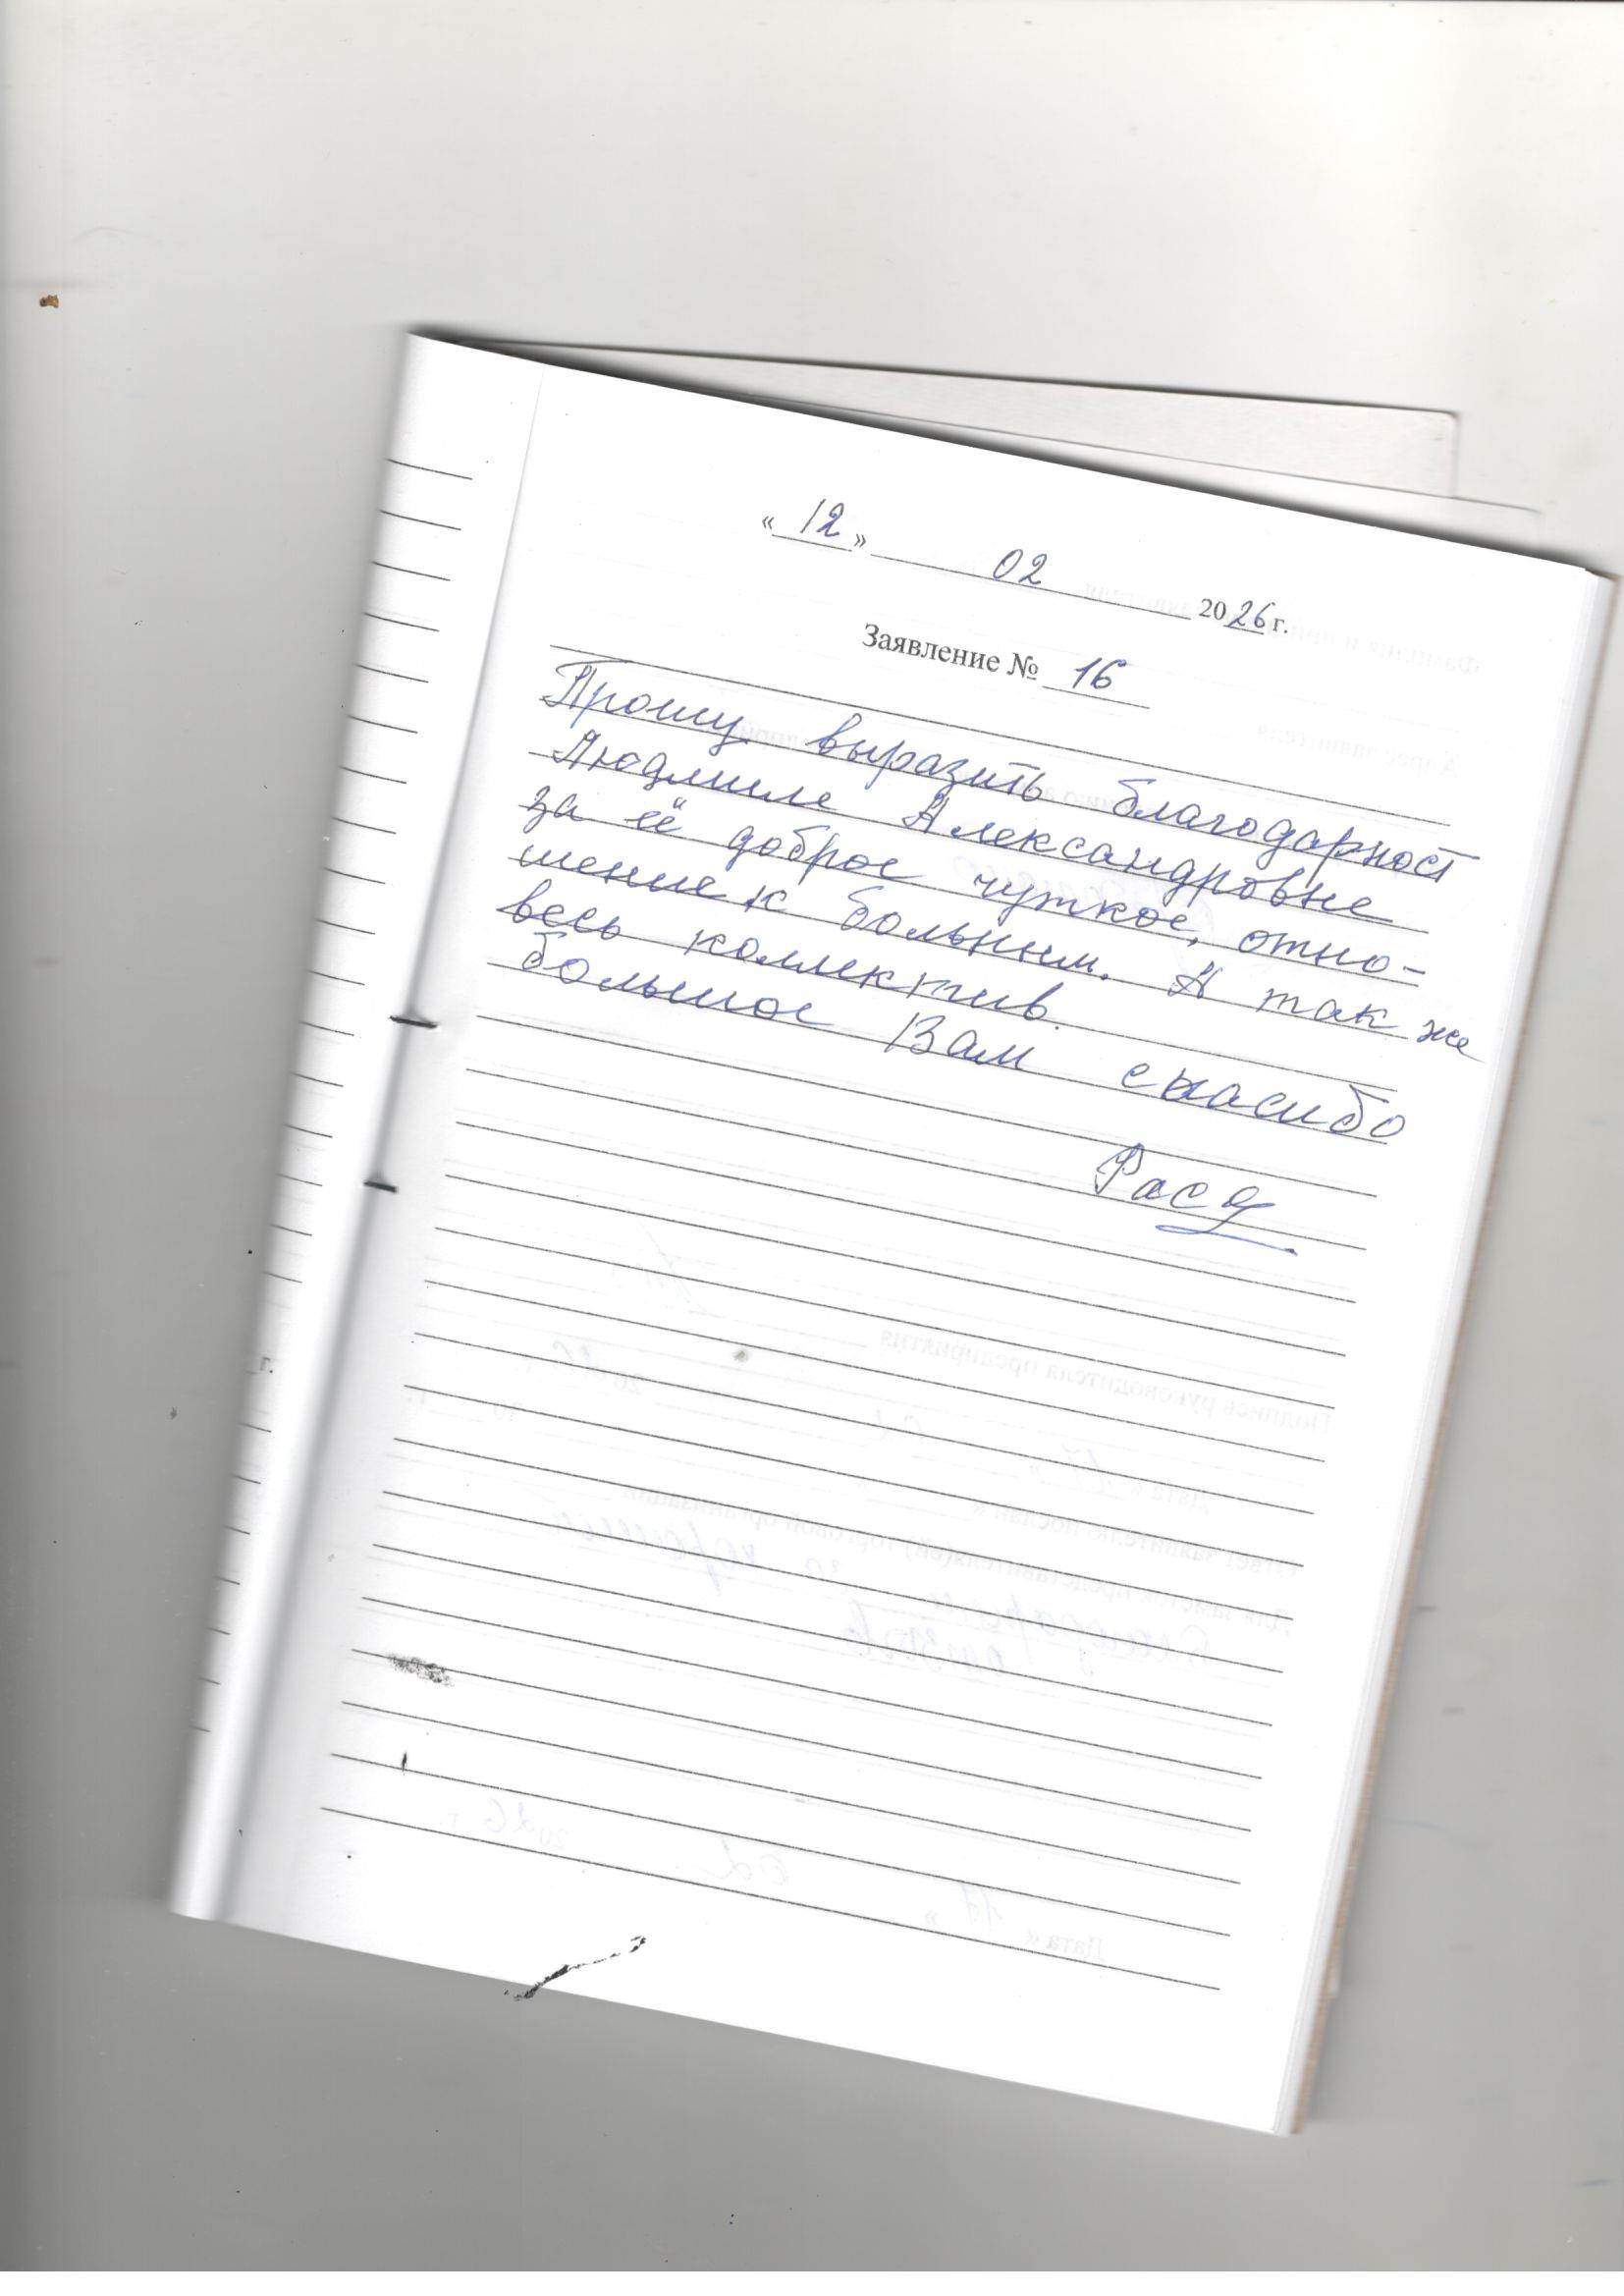 « 12 » 02 2026 г.
Заявление № 16
Прошу выразить благодарност
Людмиле Александровне
за её доброе чуткое, отно-
шение к больным. А так же
весь коллектив.
большое Вам спасибо